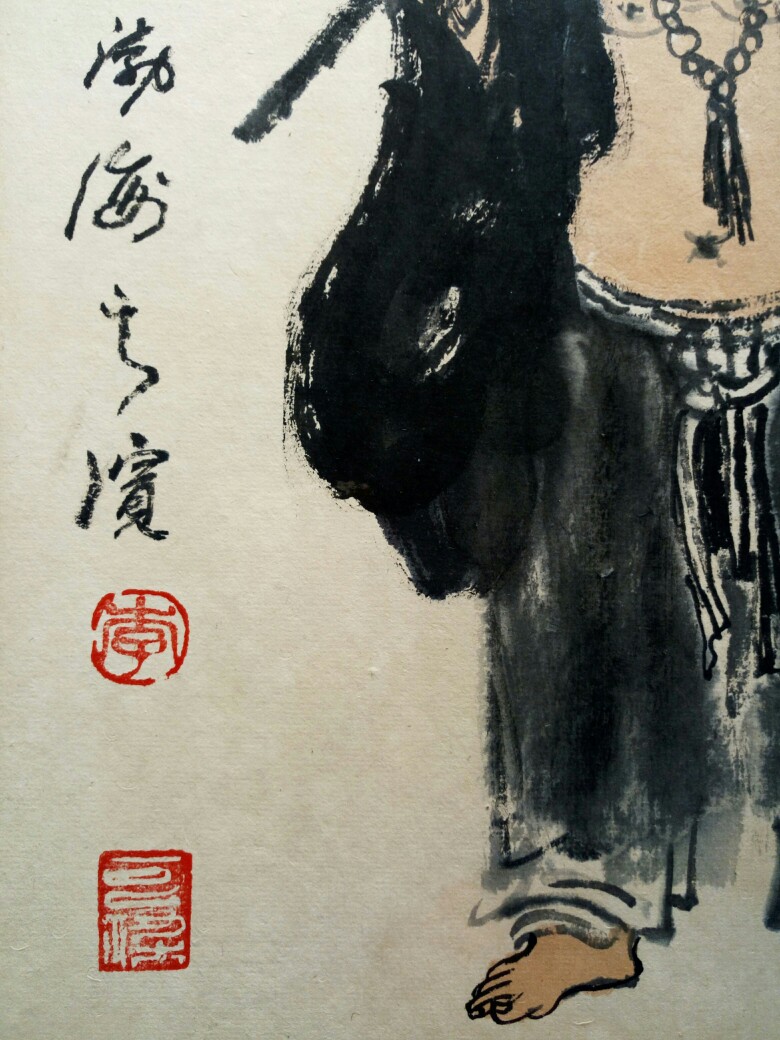 渤海之濱
李